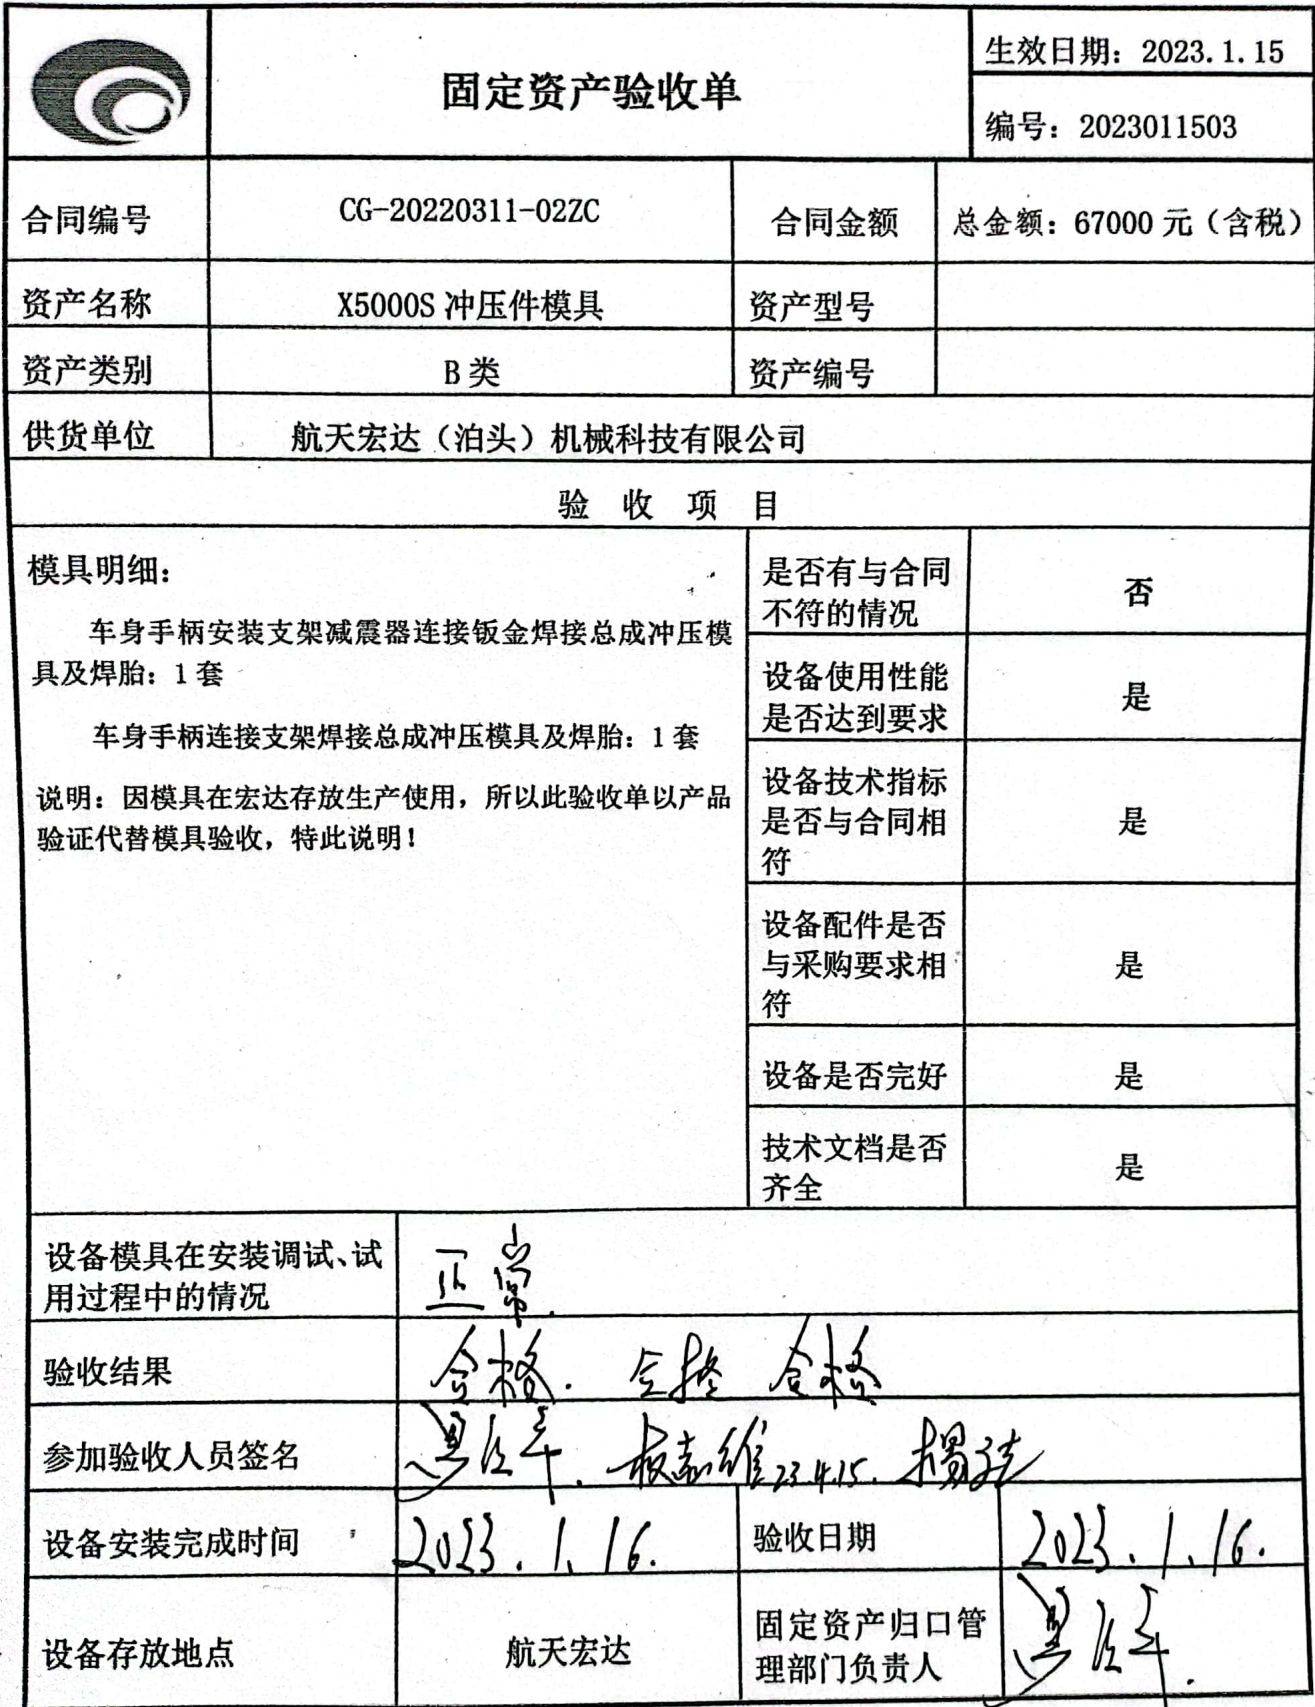 固定资产验收单
生效日期：2023.1.15
编号：2023011503
合同编号
CG-20220311-02ZC
合同金额
总金额：67000 元（含税）
资产名称
X5000S 冲压件模具
资产型号
资产类别
B 类
资产编号
供货单位
航天宏达（泊头）机械科技有限公司
验 收 项 目
模具明细：
车身手柄安装支架减震器连接钣金焊接总成冲压模
具及焊胎：1 套
车身手柄连接支架焊接总成冲压模具及焊胎：1 套
说明：因模具在宏达存放生产使用，所以此验收单以产品
验证代替模具验收，特此说明！
是否有与合同
不符的情况
否
设备使用性能
是否达到要求
是
设备技术指标
是否与合同相
符
是
设备配件是否
与采购要求相
符
是
设备是否完好
是
技术文档是否
齐全
是
设备模具在安装调试、试
用过程中的情况
正常.
验收结果
合格. 合格 合格
参加验收人员签名
23.4.15.
设备安装完成时间
2023.1.16.
验收日期
2023.1.16.
设备存放地点
航天宏达
固定资产归口管
理部门负责人